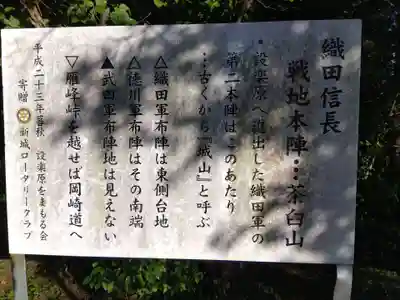 織田信長
戦地本陣…茶臼山
・設楽原へ進出した織田軍の
第二本陣はこのあたり
…古くから『城山』と呼ぶ
△織田軍布陣は東側台地
△徳川軍布陣はその南端
▲武田軍布陣地は見えない
▽雁峰峠を越せば岡崎道へ
平成二十三年春秋 設楽原をまもる会
寄贈 新城ロータリークラブ